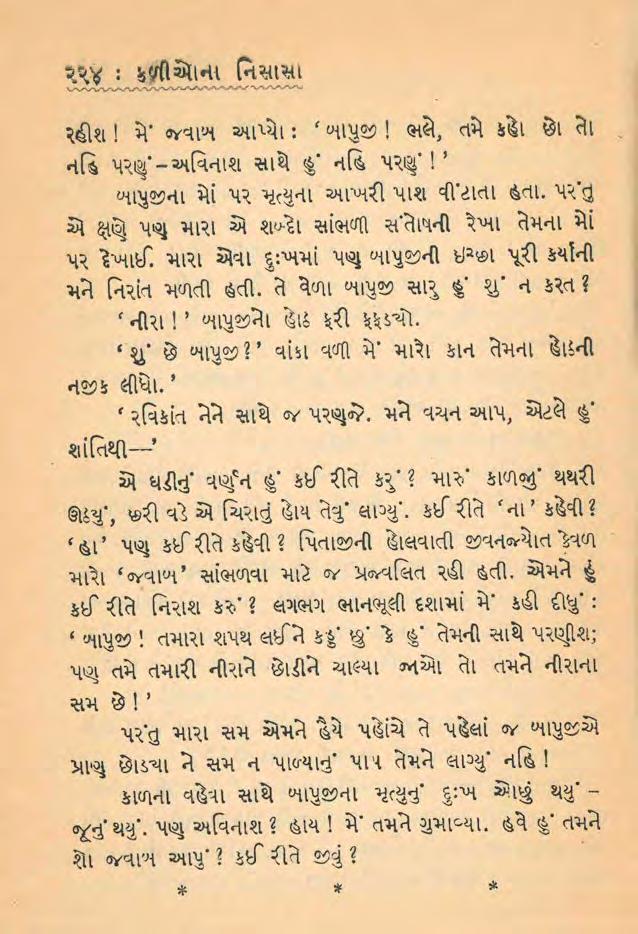 ૨૨૪ : કળીઓના નિસાસા
રહીશ ! મેં જવાબ આપ્યો : ‘બાપુજી ! ભલે, તમે કહો છો તો
નહિ પરણું – અવિનાશ સાથે હું નહિ પરણું !’
બાપુજીના મોં પર મૃત્યુના આખરી પાશ વીંટાતા હતા. પરંતુ
એ ક્ષણે પણ મારા એ શબ્દો સાંભળી સંતોષની રેખા તેમના મોં
પર દેખાઈ. મારા એવા દુઃખમાં પણ બાપુજીની ઇચ્છા પૂરી કર્યાની
મને નિરાંત મળતી હતી. તે વેળા બાપુજી સારુ હું શું ન કરત ?
‘નીરા !’ બાપુજીનો હોઠ ફરી ફફડ્યો.
‘શું છે બાપુજી ?’ વાંકા વળી મેં મારો કાન તેમના હોઠની
નજીક લીધો.’
‘રવિકાંત નેને સાથે જ પરણજે. મને વચન આપ, એટલે હું
શાંતિથી—’
એ ઘડીનું વર્ણન હું કઈ રીતે કરું ? મારું કાળજું થથરી
ઊઠ્યું, છરી વડે એ ચિરાતું હોય તેવું લાગ્યું. કઈ રીતે ‘ના’ કહેવી ?
‘હા’ પણ કઈ રીતે કહેવી ? પિતાજીની હોલવાતી જીવનજ્યોત કેવળ
મારો ‘જવાબ’ સાંભળવા માટે જ પ્રજ્વલિત રહી હતી. એમને હું
કઈ રીતે નિરાશ કરું ? લગભગ ભાનભૂલી દશામાં મેં કહી દીધું :
‘બાપુજી ! તમારા શપથ લઈને કહું છું કે હું તેમની સાથે પરણીશ;
પણ તમે તમારી નીરાને છોડીને ચાલ્યા જાઓ તો તમને નીરાના
સમ છે !’
પરંતુ મારા સમ એમને હૈયે પહોંચે તે પહેલાં જ બાપુજીએ
પ્રાણ છોડ્યા ને સમ ન પાળ્યાનું પાપ તેમને લાગ્યું નહિ !
કાળના વહેવા સાથે બાપુજીના મૃત્યુનું દુઃખ ઓછું થયું –
જૂનું થયું. પણ અવિનાશ ? હાય ! મેં તમને ગુમાવ્યા. હવે હું તમને
શો જવાબ આપું ? કઈ રીતે જીવું ?
* * *